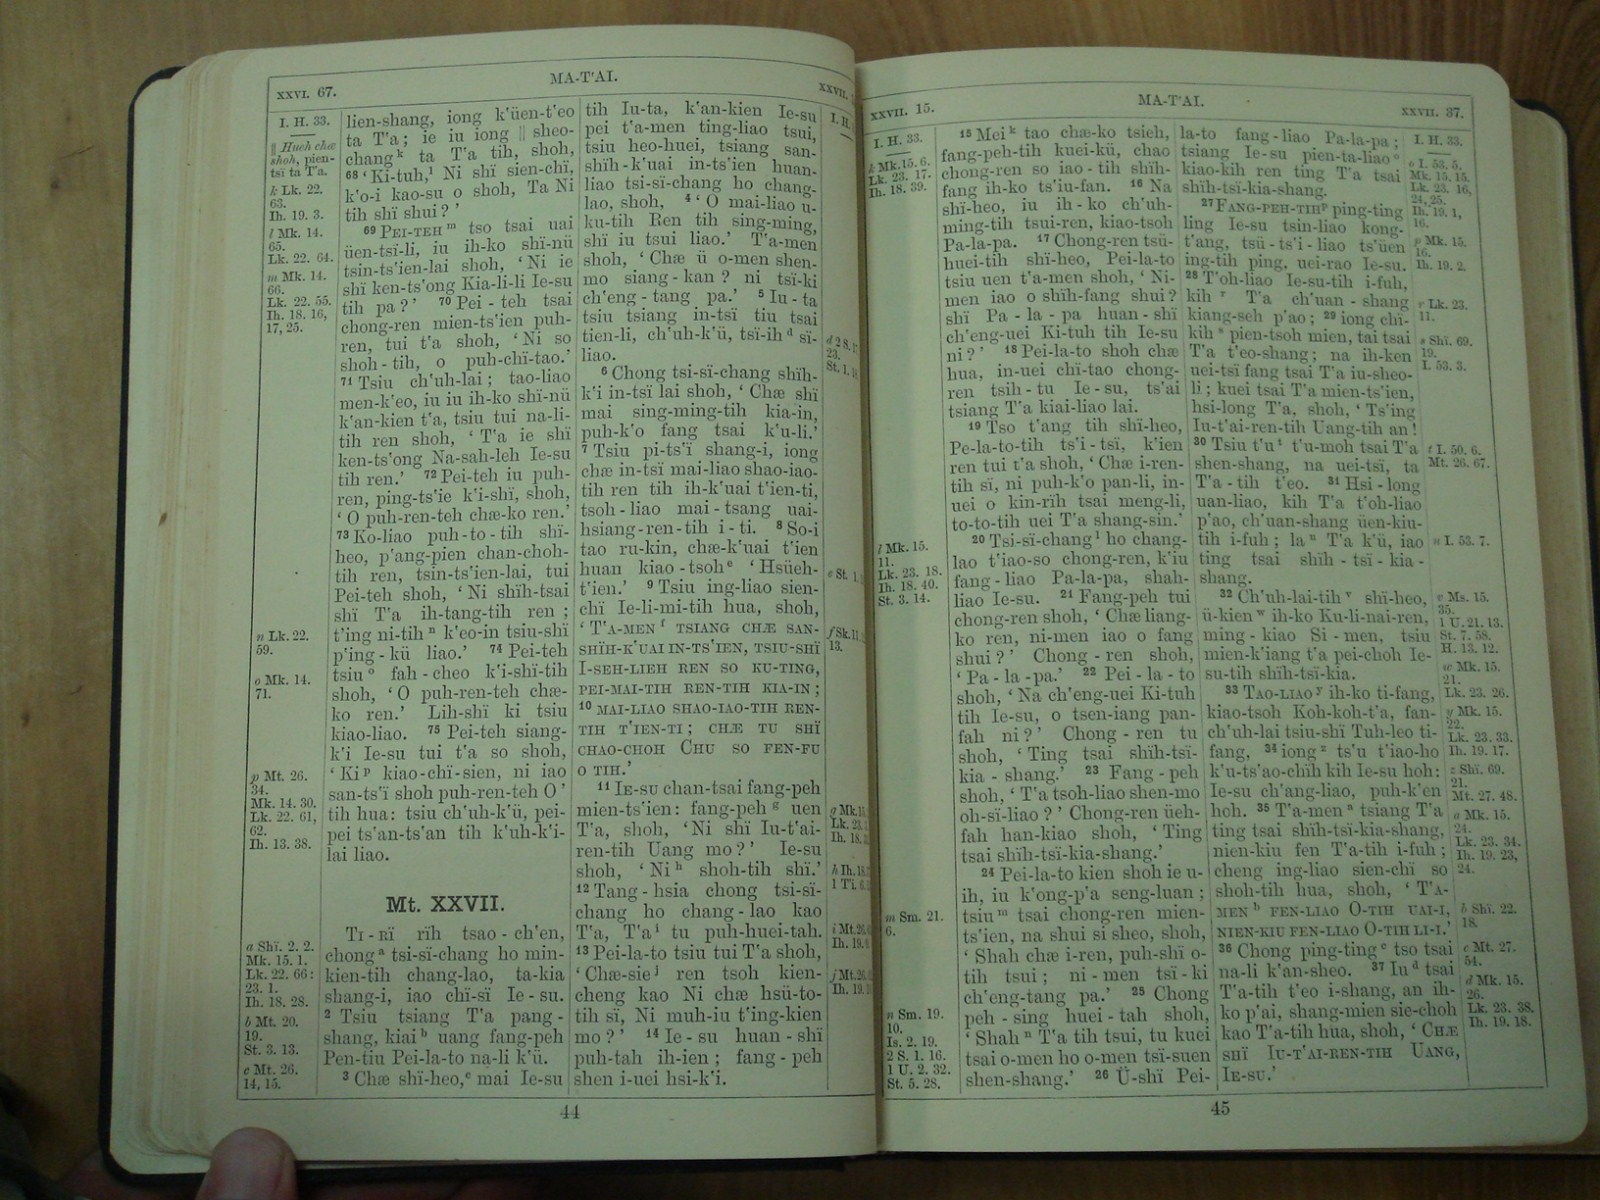 XXVI. 67.
MA-T'AI.
XXVII.
I. H. 33.
|| Hueh chæ
shoh, pien-
tsï ta T'a.
k Lk. 22.
63.
Ih. 19. 3.
l Mk. 14.
65.
Lk. 22. 64.
m Mk. 14.
66.
Lk. 22. 55.
Ih. 18. 16,
17, 25.
n Lk. 22.
59.
o Mk. 14.
71.
p Mt. 26.
34.
Mk. 14. 30.
Lk. 22. 61,
62.
Ih. 13. 38.
a Shï. 2. 2.
Mk. 15. 1.
Lk. 22. 66:
23. 1.
Ih. 18. 28.
b Mt. 20.
19.
St. 3. 13.
c Mt. 26.
14, 15.
lien-shang, iong k'üen-t'eo
ta T'a; ie iu iong || sheo-
chang k ta T'a tih, shoh,
68 ‘ Ki-tuh, l Ni shï sien-chï,
k'o-i kao-su o shoh, Ta Ni
tih shï shui? ’
69 PEI-TEH m tso tsai uai
üen-tsï-li, iu ih-ko shï-nü
tsin-ts'ien-lai shoh, ‘ Ni ie
shï ken-ts'ong Kia-li-li Ie-su
tih pa? ’ 70 Pei - teh tsai
chong-ren mien-ts'ien puh-
ren, tui t'a shoh, ‘ Ni so
shoh - tih, o puh-chï-tao.’
71 Tsiu ch'uh-lai; tao-liao
men-k'eo, iu iu ih-ko shï-nü
k'an-kien t'a, tsiu tui na-li-
tih ren shoh, ‘ T'a ie shï
ken-ts'ong Na-sah-leh Ie-su
tih ren.’ 72 Pei-teh iu puh-
ren, ping-ts'ie k'i-shï, shoh,
‘ O puh-ren-teh chæ-ko ren.’
73 Ko-liao puh - to - tih shï-
heo, p'ang-pien chan-choh-
tih ren, tsin-ts'ien-lai, tui
Pei-teh shoh, ‘ Ni shïh-tsai
shï T'a ih-tang-tih ren ;
t'ing ni-tih n k'eo-in tsiu-shï
p'ing - kü liao.’ 74 Pei-teh
tsiu o fah - cheo k'i-shï-tih
shoh, ‘ O puh-ren-teh chæ-
ko ren.’ Lih-shï ki tsiu
kiao-liao. 75 Pei-teh siang-
k'i Ie-su tui t'a so shoh,
‘ Ki p kiao-chï-sien, ni iao
san-ts'ï shoh puh-ren-teh O ’
tih hua: tsiu ch'uh-k'ü, pei-
pei ts'an-ts'an tih k'uh-k'i-
lai liao.
Mt. XXVII.
TI - RÏ rïh tsao - ch'en,
chong a tsi-sï-chang ho min-
kien-tih chang-lao, ta-kia
shang-i, iao chï-sï Ie - su.
2 Tsiu tsiang T'a pang -
shang, kiai b uang fang-peh
Pen-tiu Pei-la-to na-li k'ü.
3 Chæ shï-heo, c mai Ie-su
tih Iu-ta, k'an-kien Ie-su
pei t'a-men ting-liao tsui,
tsiu heo-huei, tsiang san-
shïh-k'uai in-ts'ien huan-
liao tsi-sï-chang ho chang-
lao, shoh, 4 ‘ O mai-liao u-
ku-tih Ren tih sing-ming,
shï iu tsui liao.’ T'a-men
shoh, ‘ Chæ ü o-men shen-
mo siang - kan ? ni tsï-ki
ch'eng - tang pa.’ 5 Iu - ta
tsiu tsiang in-tsï tiu tsai
tien-li, ch'uh-k'ü, tsï-ih d sï-
liao.
6 Chong tsi-sï-chang shïh-
k'i in-tsï lai shoh, ‘ Chæ shï
mai sing-ming-tih kia-in,
puh-k'o fang tsai k'u-li.’
7 Tsiu pi-ts'ï shang-i, iong
chæ in-tsï mai-liao shao-iao-
tih ren tih ih-k'uai t'ien-ti,
tsoh - liao mai - tsang uai-
hsiang-ren-tih i - ti. 8 So-i
tao ru-kin, chæ-k'uai t'ien
huan kiao - tsoh e ‘ Hsüeh-
t'ien.’ 9 Tsiu ing-liao sien-
chï Ie-li-mi-tih hua, shoh,
‘ T'A-MEN f TSIANG CHÆ SAN-
SHÏH-K'UAI IN-TS'IEN, TSIU-SHÏ
I-SEH-LIEH REN SO KU-TING,
PEI-MAI-TIH REN-TIH KIA-IN ;
10 MAI-LIAO SHAO-IAO-TIH REN-
TIH T'IEN-TI ; CHÆ TU SHÏ
CHAO-CHOH CHU SO FEN-FU
O TIH.’
11 IE-SU chan-tsai fang-peh
mien-ts'ien: fang-peh g uen
T'a, shoh, ‘ Ni shï Iu-t'ai-
ren-tih Uang mo? ’ Ie-su
shoh, ‘ Ni h shoh-tih shï.’
12 Tang - hsia chong tsi-sï-
chang ho chang - lao kao
T'a, T'a i tu puh-huei-tah.
13 Pei-la-to tsiu tui T'a shoh,
‘ Chæ-sie j ren tsoh kien-
cheng kao Ni chæ hsü-to-
tih sï, Ni muh-iu t'ing-kien
mo? ’ 14 Ie - su huan - shï
puh-tah ih-ien ; fang - peh
shen i-uei hsi-k'i.
I. H.
d 2 S.
23.
St. 1.
e St. 1.
f Sk. 11.
13.
g Mk.
Lk. 23.
Ih. 18.
h Ih. 18.
1 T'i. 6.
i Mt. 26.
Ih. 19.
j Mt. 26.
Ih. 19.
44
XXVII. 15.
MA-T'AI.
XXVII. 37.
I. H. 33.
k Mk. 15. 6.
Lk. 23. 17.
Ih. 18. 39.
l Mk. 15.
11.
Lk. 23. 18.
Ih. 18. 40.
St. 3. 14.
m Sm. 21.
6.
n Sm. 19.
10.
Is. 2. 19.
2 S. 1. 16.
1 U. 2. 32.
St. 5. 28.
15 Mei k tao chæ-ko tsieh,
fang-peh-tih kuei-kü, chao
chong-ren so iao - tih shïh-
fang ih-ko ts'iu-fan. 16 Na
shï-heo, iu ih - ko ch'uh-
ming-tih tsui-ren, kiao-tsoh
Pa-la-pa. 17 Chong-ren tsü-
huei-tih shï-heo, Pei-la-to
tsiu uen t'a-men shoh, ‘ Ni-
men iao o shïh-fang shui?
shï Pa - la - pa huan - shï
ch'eng-uei Ki-tuh tih Ie-su
ni? ’ 18 Pei-la-to shoh chæ
hua, in-uei chï-tao chong-
ren tsih - tu Ie - su, ts'ai
tsiang T'a kiai-liao lai.
19 Tso t'ang tih shï-heo,
Pe-la-to-tih ts'i - tsï, k'ien
ren tui t'a shoh, ‘ Chæ i-ren-
tih sï, ni puh-k'o pan-li, in-
uei o kin-rïh tsai meng-li,
to-to-tih uei T'a shang-sin.’
20 Tsi-sï-chang l ho chang-
lao t'iao-so chong-ren, k'iu
fang - liao Pa-la-pa, shah-
liao Ie-su. 21 Fang-peh tui
chong-ren shoh, ‘ Chæ liang-
ko ren, ni-men iao o fang
shui ? ’ Chong - ren shoh,
‘ Pa - la - pa.’ 22 Pei - la - to
shoh, ‘ Na ch'eng-uei Ki-tuh
tih Ie-su, o tsen-iang pan-
fah ni? ’ Chong - ren tu
shoh, ‘ Ting tsai shïh-tsï-
kia - shang.’ 23 Fang - peh
shoh, ‘ T'a tsoh-liao shen-mo
oh-sï-liao ? ’ Chong-ren üeh-
fah han-kiao shoh, ‘ Ting
tsai shïh-tsï-kia-shang.’
24 Pei-la-to kien shoh ie u-
ih, iu k'ong-p'a seng-luan ;
tsiu m tsai chong-ren mien-
ts'ien, na shui si sheo, shoh,
‘ Shah chæ i-ren, puh-shï o-
tih tsui ; ni - men tsï - ki
ch'eng-tang pa.’ 25 Chong
peh - sing huei - tah shoh,
‘ Shah n T'a tih tsui, tu kuei
tsai o-men ho o-men tsï-suen
shen-shang.’ 26 Ü-shï Pei-
la-to fang - liao Pa-la-pa ;
tsiang Ie-su pien-ta-liao o
kiao-kih ren ting T'a tsai
shïh-tsï-kia-shang.
27 FANG-PEH-TIH p ping-ting
ling Ie-su tsin-liao kong-
t'ang, tsü - ts'i - liao ts'üen
ing-tih ping, uei-rao Ie-su.
28 T'oh-liao Ie-su-tih i-fuh,
kih r T'a ch'uan - shang
kiang-seh p'ao ; 29 iong chï-
kih s pien-tsoh mien, tai tsai
T'a t'eo-shang ; na ih-ken
uei-tsï fang tsai T'a iu-sheo-
li ; kuei tsai T'a mien-ts'ien,
hsi-long T'a, shoh, ‘ Ts'ing
Iu-t'ai-ren-tih Uang-tih an !
30 Tsiu t'u t t'u-moh tsai T'a
shen-shang, na uei-tsï, ta
T'a - tih t'eo. 31 Hsi - long
uan-liao, kih T'a t'oh-liao
p'ao, ch'uan-shang üen-kiu-
tih i-fuh ; la u T'a k'ü, iao
ting tsai shïh - tsï - kia -
shang.
32 Ch'uh-lai-tih v shï-heo,
ü-kien w ih-ko Ku-li-nai-ren,
ming - kiao Si - men, tsiu
mien-k'iang t'a pei-choh Ie-
su-tih shïh-tsï-kia.
33 TAO-LIAO y ih-ko ti-fang,
kiao-tsoh Koh-koh-t'a, fan-
ch'uh-lai tsiu-shï Tuh-leo ti-
fang, 34 iong z ts'u t'iao-ho
k'u-ts'ao-chïh kih Ie-su hoh:
Ie-su ch'ang-liao, puh-k'en
hoh. 35 T'a-men a tsiang T'a
ting tsai shïh-tsï-kia-shang,
nien-kiu fen T'a-tih i-fuh ;
cheng ing-liao sien-chï so
shoh-tih hua, shoh, ‘ T'A-
MEN b FEN-LIAO O-TIH UAI-I,
NIEN-KIU FEN-LIAO O-TIH LI-I.’
36 Chong ping-ting c tso tsai
na-li k'an-sheo. 37 Iu d tsai
T'a-tih t'eo i-shang, an ih-
ko p'ai, shang-mien sie-choh
kao T'a-tih hua, shoh, ‘ CHÆ
SHÏ IU-T'AI-REN-TIH UANG,
IE-SU.’
I. H. 33.
o I. 53. 5.
Mk. 15. 15.
Lk. 23. 16,
24, 25.
Ih. 19. 1,
16.
p Mk. 15.
16.
Ih. 19. 2.
r Lk. 23.
11.
s Shï. 69.
19.
I. 53. 3.
t I. 50. 6.
Mt. 26. 67.
u I. 53. 7.
v Ms. 15.
35.
1 U. 21. 13.
St. 7. 58.
H. 13. 12.
w Mk. 15.
21.
Lk. 23. 26.
y Mk. 15.
22.
Lk. 23. 33.
Ih. 19. 17.
z Shï. 69.
21.
Mt. 27. 48.
a Mk. 15.
24.
Lk. 23. 34.
Ih. 19. 23,
24.
b Shï. 22.
18.
c Mt. 27.
54.
d Mk. 15.
26.
Lk. 23. 38.
Ih. 19. 18.
45